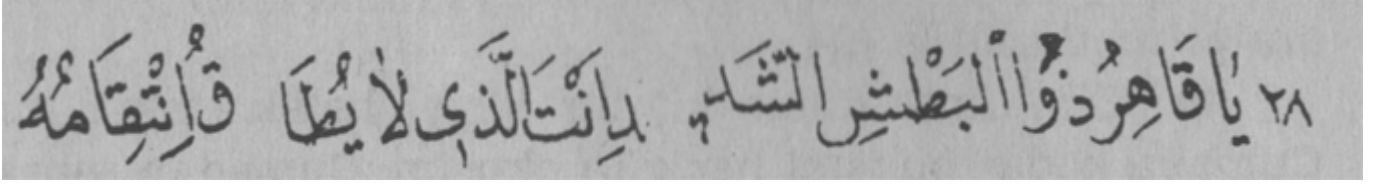 ٢٨ يَا قَاهِرُ ذُواالْبَطْشِ الشَّدِيدِ اَنْتَ الَّذِي لَا يُطَاقُ اِنْتِقَامُهُ